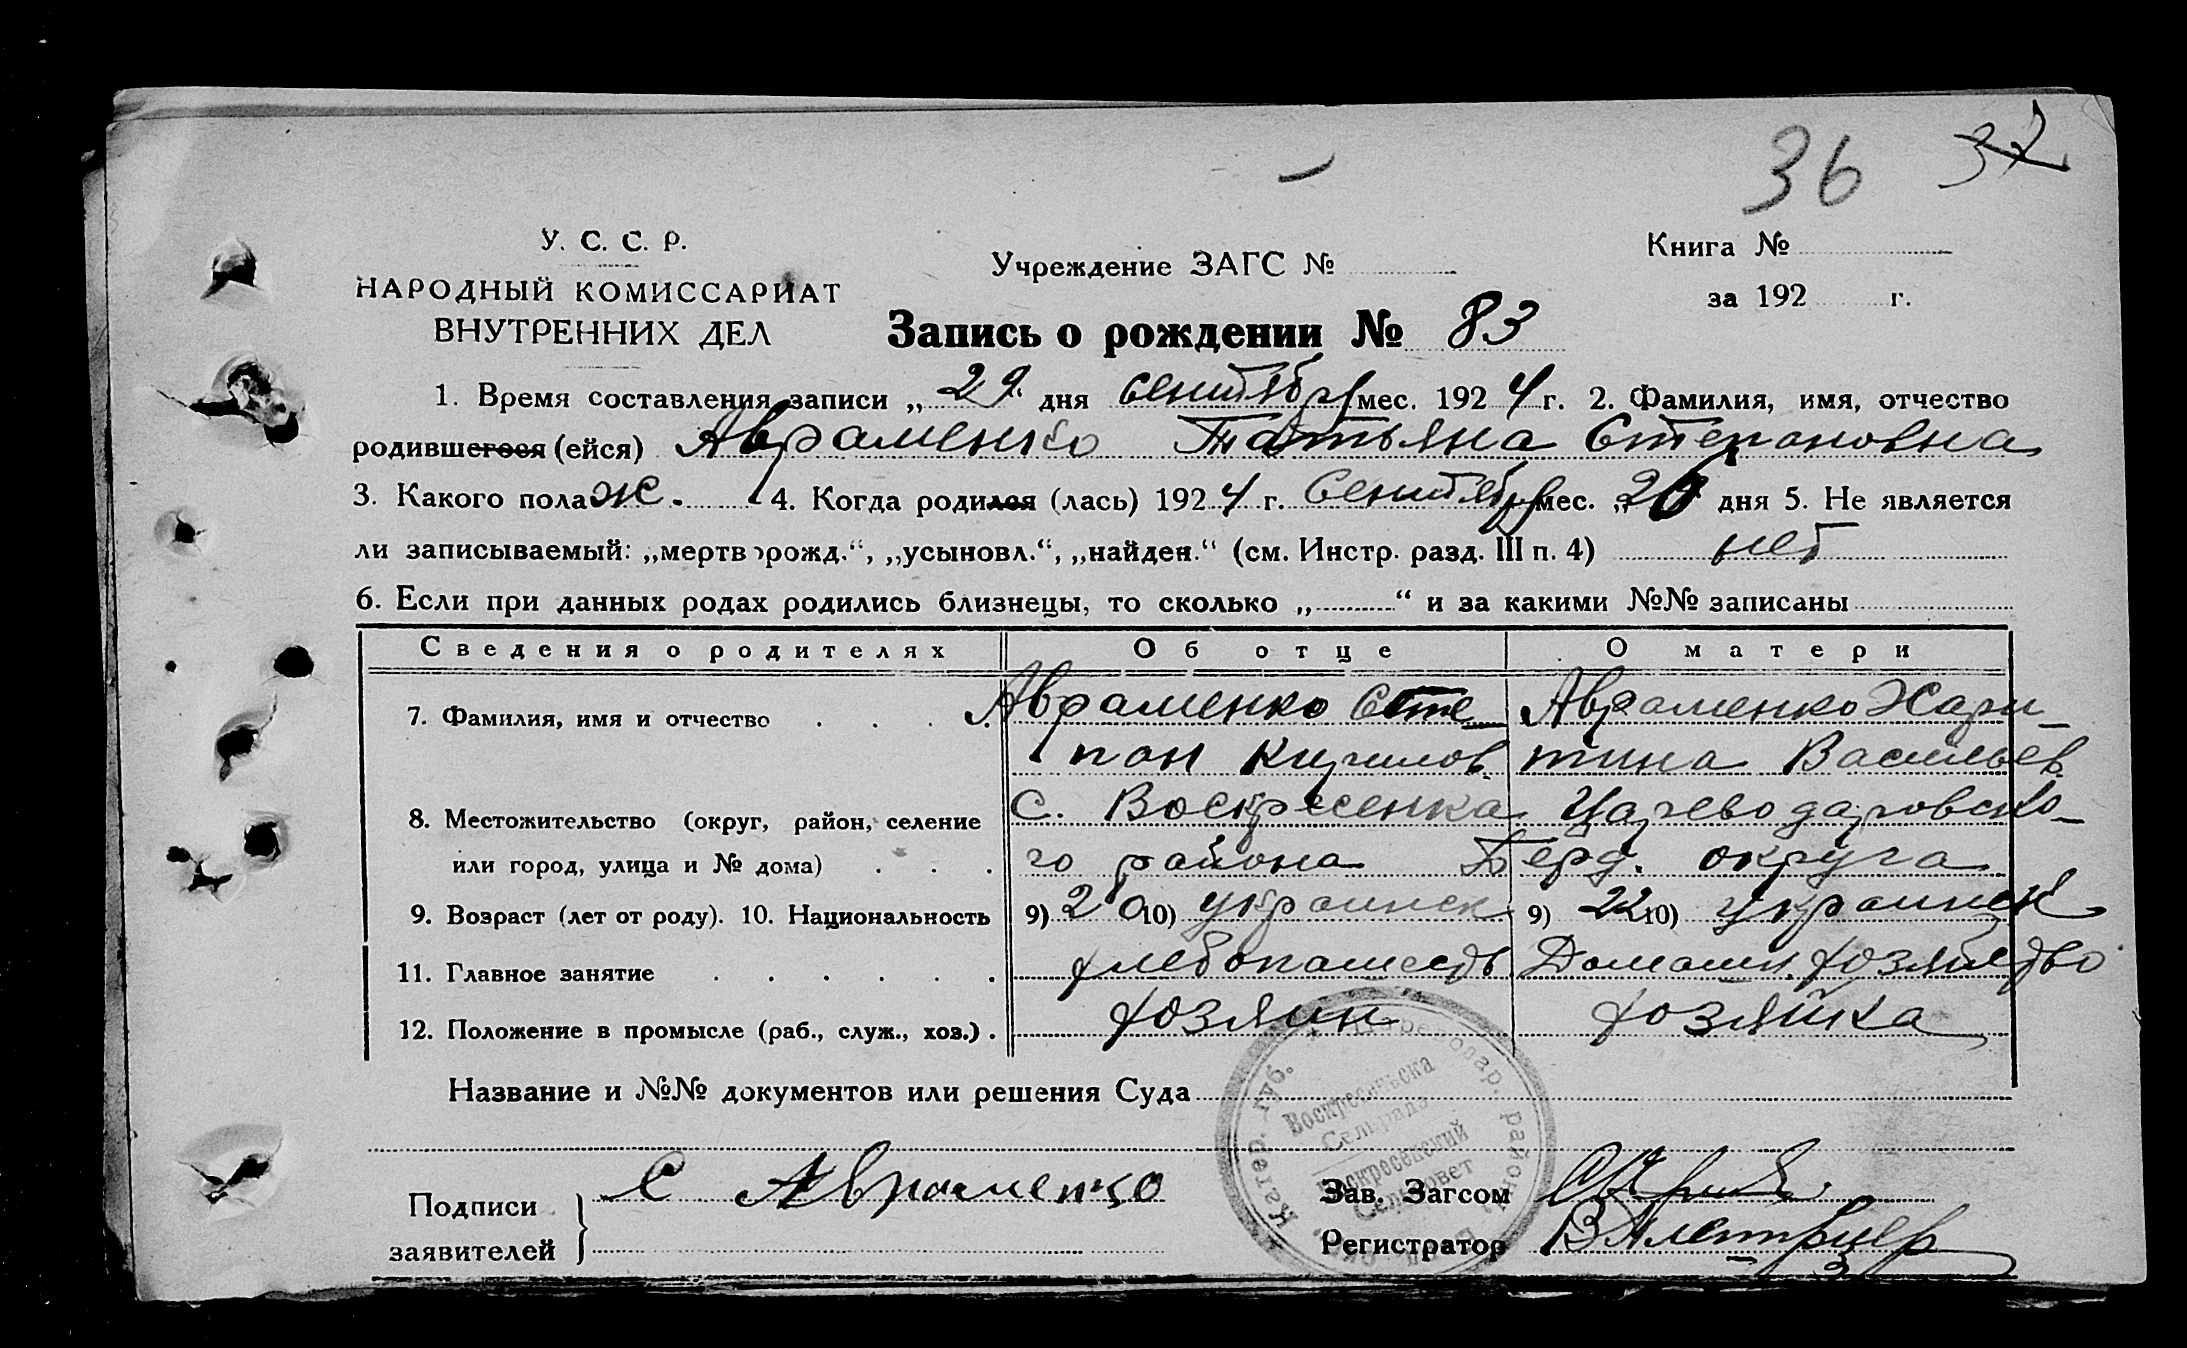 36 37
У. С. С. Р.
НАРОДНЫЙ КОМИССАРИАТ
ВНУТРЕННИХ ДЕЛ
Учреждение ЗАГС №
Книга №
за 192 г.
Запись о рождении № 83
1. Время составления записи „ 29 дня сентября мес. 192 4 г. 2. Фамилия, имя, отчество
родившегося (ейся) Авраменко Татьяна Степановна
3. Какого пола ж. 4. Когда родился (лась) 192 4 г. Сентября мес. „ 26 дня 5. Не является
ли записываемый: „мертворожд.“, „усыновл.“, „найден.“ (см. Инстр. разд. III п. 4) нет
6. Если при данных родах родились близнецы, то сколько „ “ и за какими №№ записаны
Сведения о родителях Об отце О матери
7. Фамилия, имя и отчество . . . Авраменко Сте- Авраменко Хари-
пан Кирилов. тина Васильев.
8. Местожительство (округ, район, селение С. Воскресенка Цареводаровско-
или город, улица и № дома) . . . го района Берд. округа
9. Возраст (лет от роду). 10. Национальность 9) 20 10) украинск 9) 22 10) украинск
11. Главное занятие . . . . . . хлебопашест. Домашн. хозяйство
12. Положение в промысле (раб., служ., хоз.) . хозяин хозяйка
Название и №№ документов или решения Суда
Катер. губ. район
Воскресенська
Сельрада
Воскресенский
Сельсовет
Подписи
заявителей
С Авраменко
Зав. Загсом
Регистратор